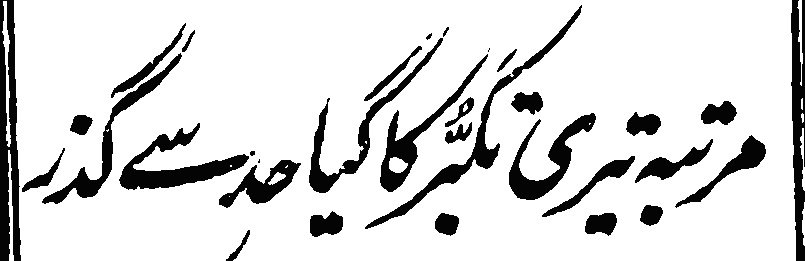 مرتبہ تیری تکبّر کا گیا حدِ سے گذر